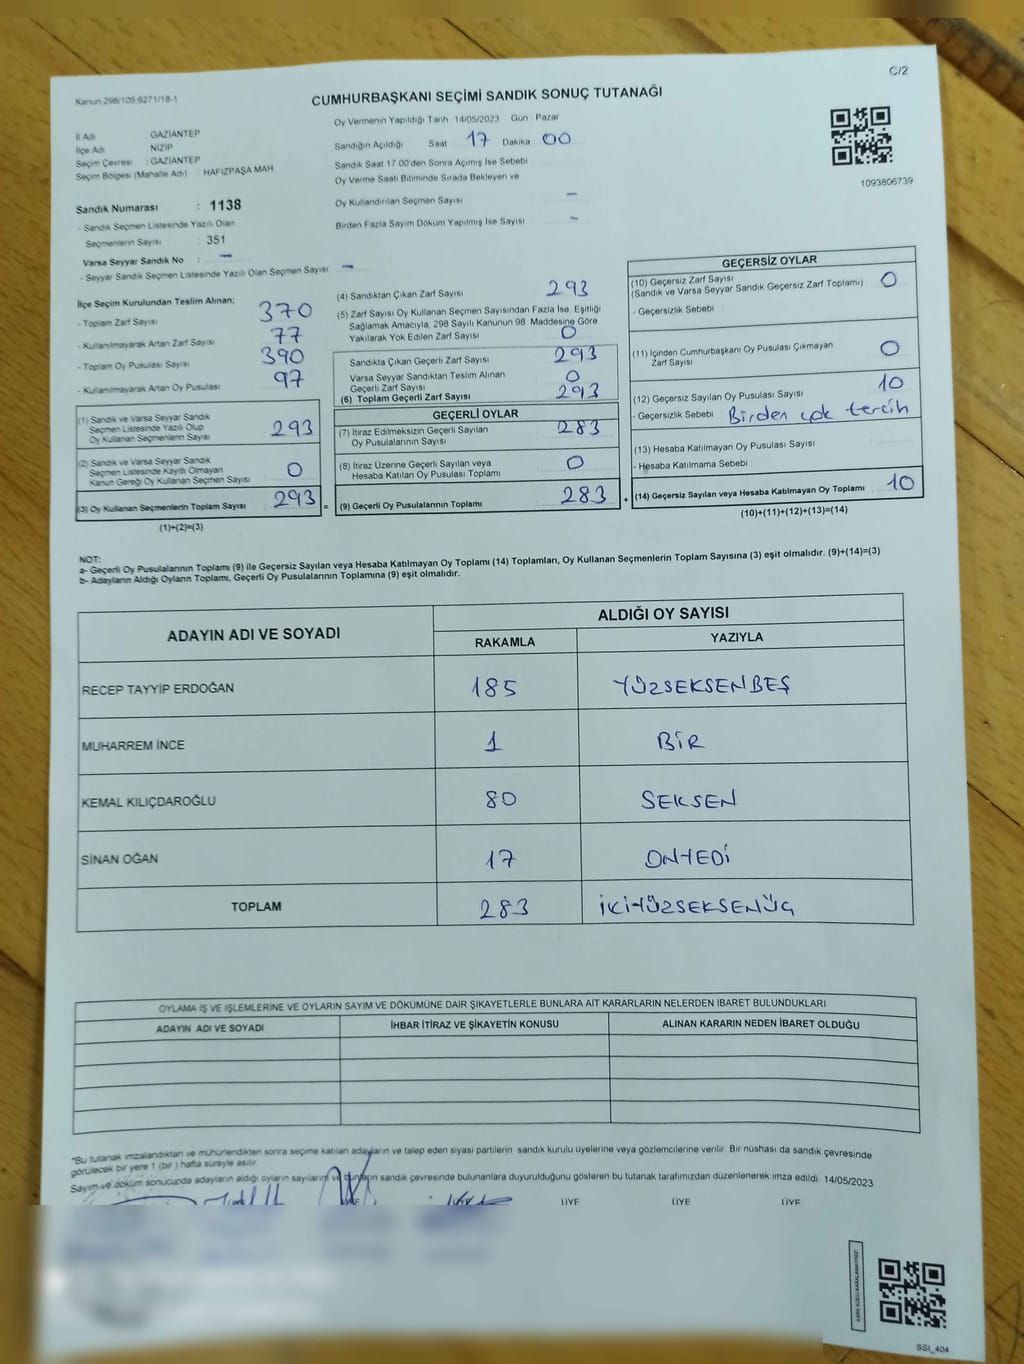 C/2
Kanun 298/105,6271/18-1
CUMHURBAŞKANI SEÇİMİ SANDIK SONUÇ TUTANAĞI
İl Adı GAZİANTEP
İlçe Adı NİZİP
Seçim Çevresi : GAZİANTEP
Seçim Bölgesi (Mahalle Adı) : HAFIZPAŞA MAH
Sandık Numarası : 1138
- Sandık Seçmen Listesinde Yazılı Olan
Seçmenlerin Sayısı : 351
Varsa Seyyar Sandık No : —
- Seyyar Sandık Seçmen Listesinde Yazılı Olan Seçmen Sayısı : —
Oy Vermenin Yapıldığı Tarih 14/05/2023 Gün Pazar
Sandığın Açıldığı Saat 17 Dakika 00
Sandık Saat 17 00'den Sonra Açımış İse Sebebi
Oy Verme Saati Bitiminde Sırada Bekleyen ve
Oy Kullandırılan Seçmen Sayısı —
Birden Fazla Sayım Döküm Yapılmış İse Sayısı —
1093806739
İlçe Seçim Kurulundan Teslim Alınan;
- Toplam Zarf Sayısı 370
- Kullanılmayarak Artan Zarf Sayısı 77
- Toplam Oy Pusulası Sayısı 390
- Kullanılmayarak Artan Oy Pusulası 97
(1) Sandık ve Varsa Seyyar Sandık
Seçmen Listesinde Yazılı Olup
Oy Kullanan Seçmenlerin Sayısı 293
(2) Sandık ve Varsa Seyyar Sandık
Seçmen Listesinde Kayıtlı Olmayan
Kanun Gereği Oy Kullanan Seçmen Sayısı 0
(3) Oy Kullanan Seçmenlerin Toplam Sayısı 293 =
(1)+(2)=(3)
(4) Sandıktan Çıkan Zarf Sayısı 293
(5) Zarf Sayısı Oy Kullanan Seçmen Sayısından Fazla İse, Eşitliği
Sağlamak Amacıyla, 298 Sayılı Kanunun 98. Maddesine Göre
Yakılarak Yok Edilen Zarf Sayısı 0
Sandıkta Çıkan Geçerli Zarf Sayısı 293
Varsa Seyyar Sandıktan Teslim Alınan
Geçerli Zarf Sayısı 0
(6) Toplam Geçerli Zarf Sayısı 293
GEÇERLİ OYLAR
(7) İtiraz Edilmeksizin Geçerli Sayılan
Oy Pusulalarının Sayısı 283
(8) İtiraz Üzerine Geçerli Sayılan veya
Hesaba Katılan Oy Pusulası Toplamı 0
(9) Geçerli Oy Pusulalarının Toplamı 283 +
GEÇERSİZ OYLAR
(10) Geçersiz Zarf Sayısı
(Sandık ve Varsa Seyyar Sandık Geçersiz Zarf Toplamı) 0
- Geçersizlik Sebebi
(11) İçinden Cumhurbaşkanı Oy Pusulası Çıkmayan
Zarf Sayısı 0
(12) Geçersiz Sayılan Oy Pusulası Sayısı 10
- Geçersizlik Sebebi Birden çok tercih
(13) Hesaba Katılmayan Oy Pusulası Sayısı
- Hesaba Katılmama Sebebi
(14) Geçersiz Sayılan veya Hesaba Katılmayan Oy Toplamı 10
(10)+(11)+(12)+(13)=(14)
NOT:
a- Geçerli Oy Pusulalarının Toplamı (9) ile Geçersiz Sayılan veya Hesaba Katılmayan Oy Toplamı (14) Toplamları, Oy Kullanan Seçmenlerin Toplam Sayısına (3) eşit olmalıdır. (9)+(14)=(3)
b- Adayların Aldığı Oyların Toplamı, Geçerli Oy Pusulalarının Toplamına (9) eşit olmalıdır.
ADAYIN ADI VE SOYADI ALDIĞI OY SAYISI
RAKAMLA YAZIYLA
RECEP TAYYİP ERDOĞAN 185 YÜZSEKSENBEŞ
MUHARREM İNCE 1 BİR
KEMAL KILIÇDAROĞLU 80 SEKSEN
SİNAN OĞAN 17 ONYEDİ
TOPLAM 283 İKİYÜZSEKSENÜÇ
OYLAMA İŞ VE İŞLEMLERİNE VE OYLARIN SAYIM VE DÖKÜMÜNE DAİR ŞİKAYETLERLE BUNLARA AİT KARARLARIN NELERDEN İBARET BULUNDUKLARI
ADAYIN ADI VE SOYADI İHBAR İTİRAZ VE ŞİKAYETİN KONUSU ALINAN KARARIN NEDEN İBARET OLDUĞU
"Bu tutanak imzalandıktan ve mühürlendikten sonra seçime katılan adayların ve talep eden siyasi partilerin sandık kurulu üyelerine veya gözlemcilerine verilir. Bir nüshası da sandık çevresinde
görülecek bir yere 1 (bir ) hafta süreyle asılır.
Sayım ve döküm sonucunda adayların aldığı oyların sayılarını ve bunların sandık çevresinde bulunanlara duyurulduğunu gösteren bu tutanak tarafımızdan düzenlenerek imza edildi. 14/05/2023
ÜYE ÜYE ÜYE
SSI_404